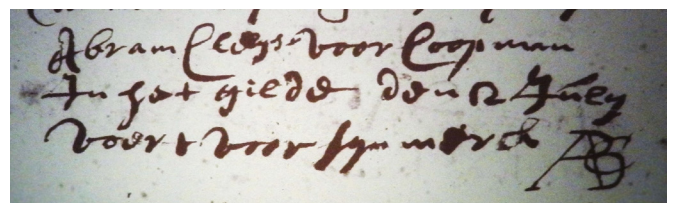 Abram Cleys voor Coopman
In het gilde den 12 July
voert voor syn merck AC